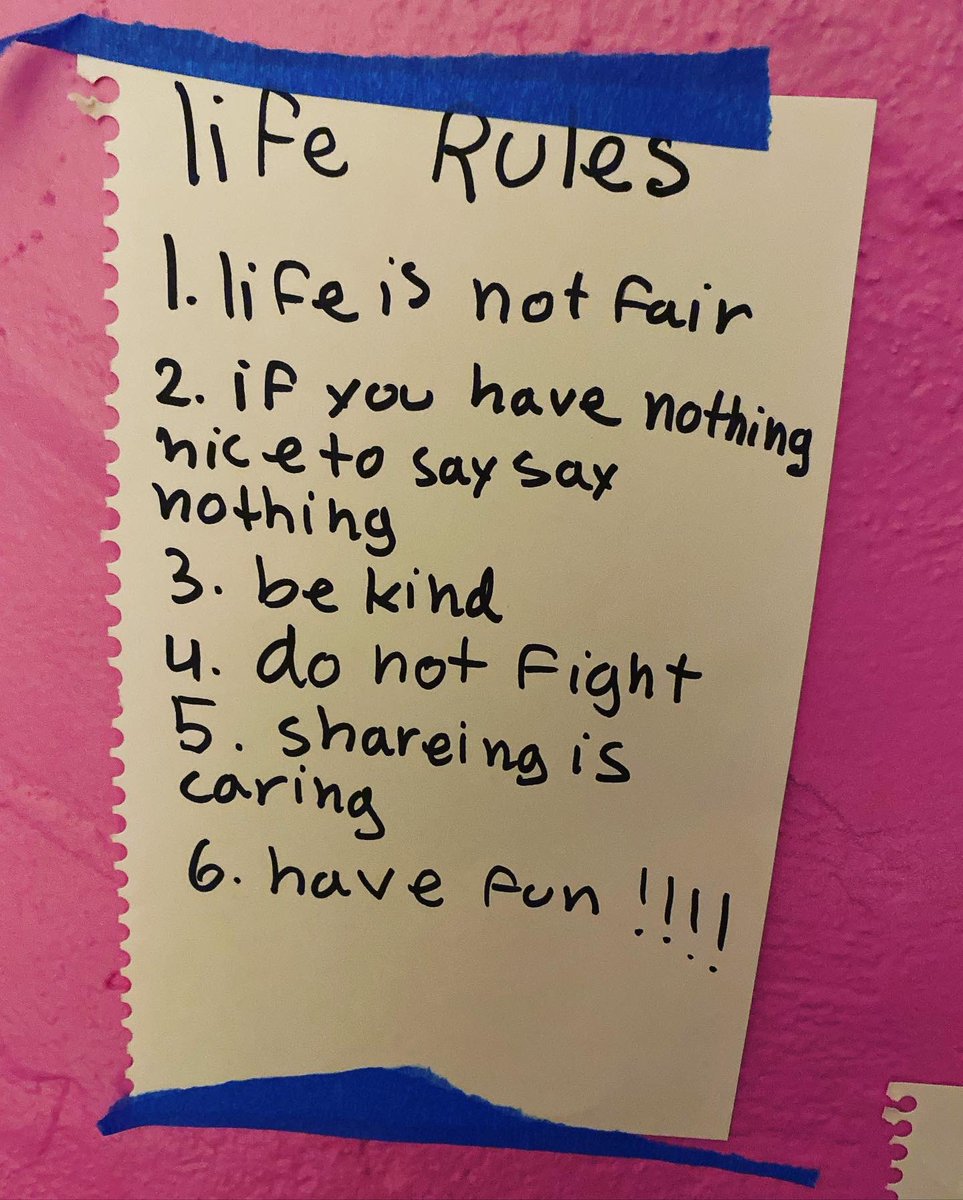 life Rules
1. life is not fair
2. if you have nothing
nice to say say
nothing
3. be kind
4. do not fight
5. shareing is
caring
6. have fun !!!!